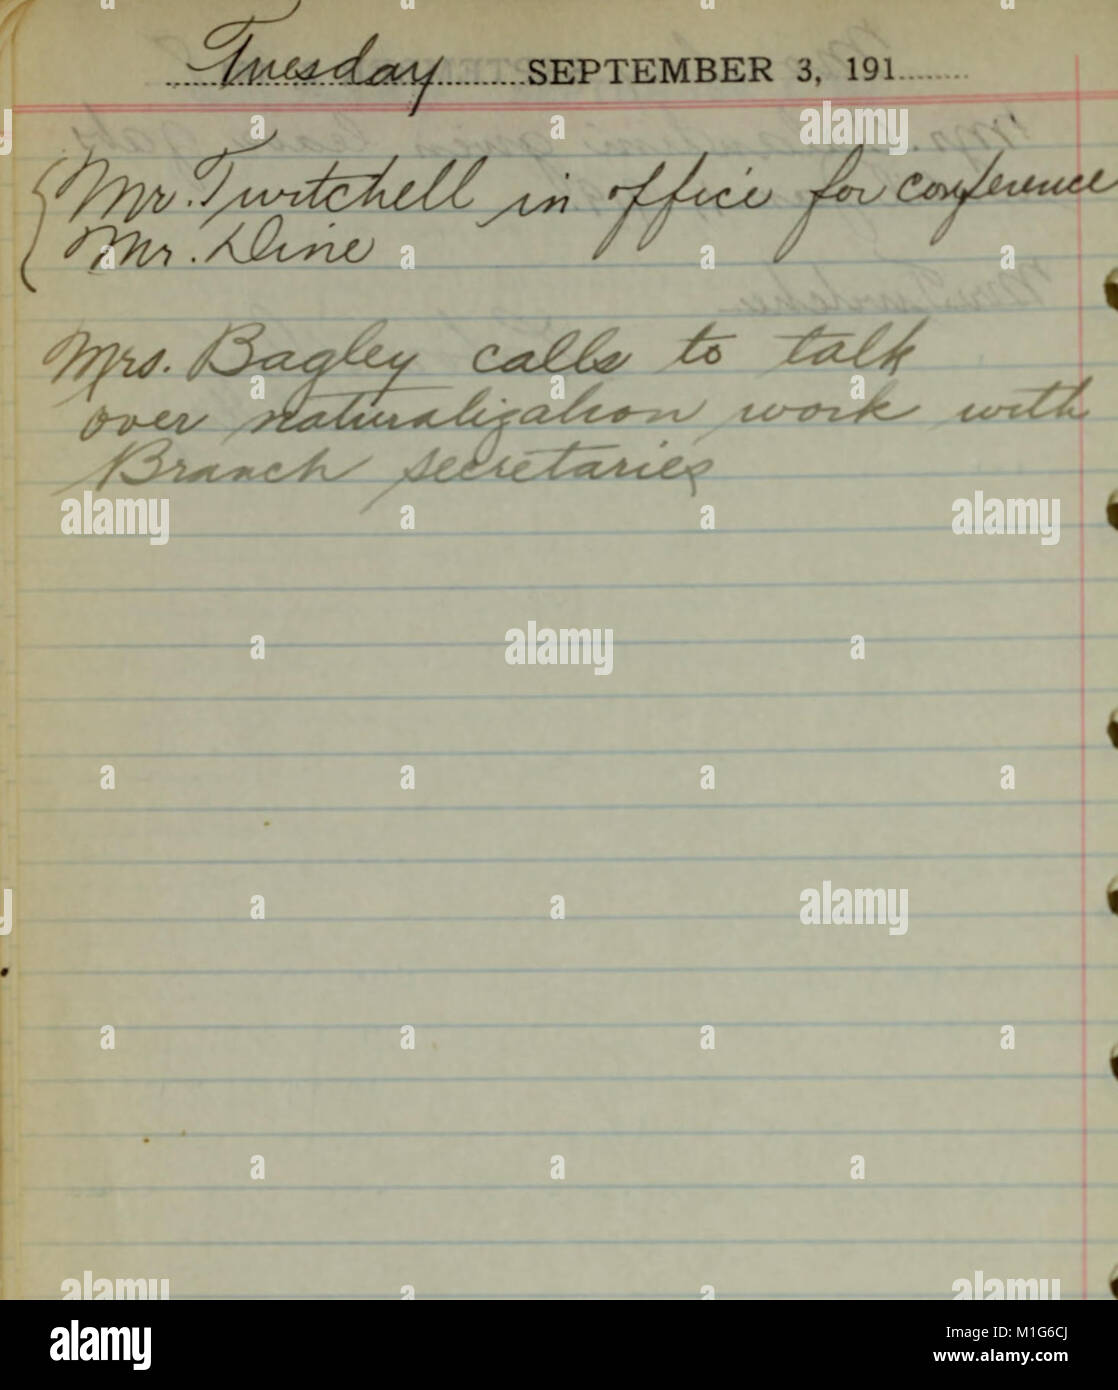 Tuesday SEPTEMBER 3, 191
Mr. Twitchell in office for conference
Mr. Dine
Mrs. Bagley calls to talk
over naturalization work with
Branch secretaries
alamy
alamy
alamy
alamy
alamy
alamy
alamy
Image ID: M1G6CJ
www.alamy.com